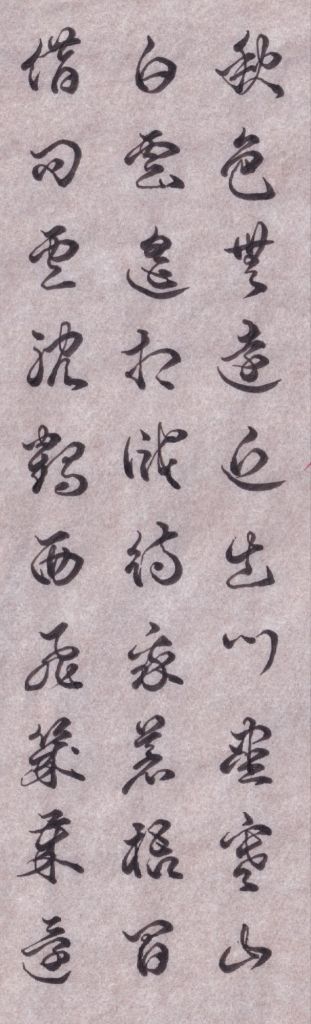 秋色無遠近出門盡寒山
白雲遙相識待我蒼梧間
借問盧耽鶴西飛幾歲還